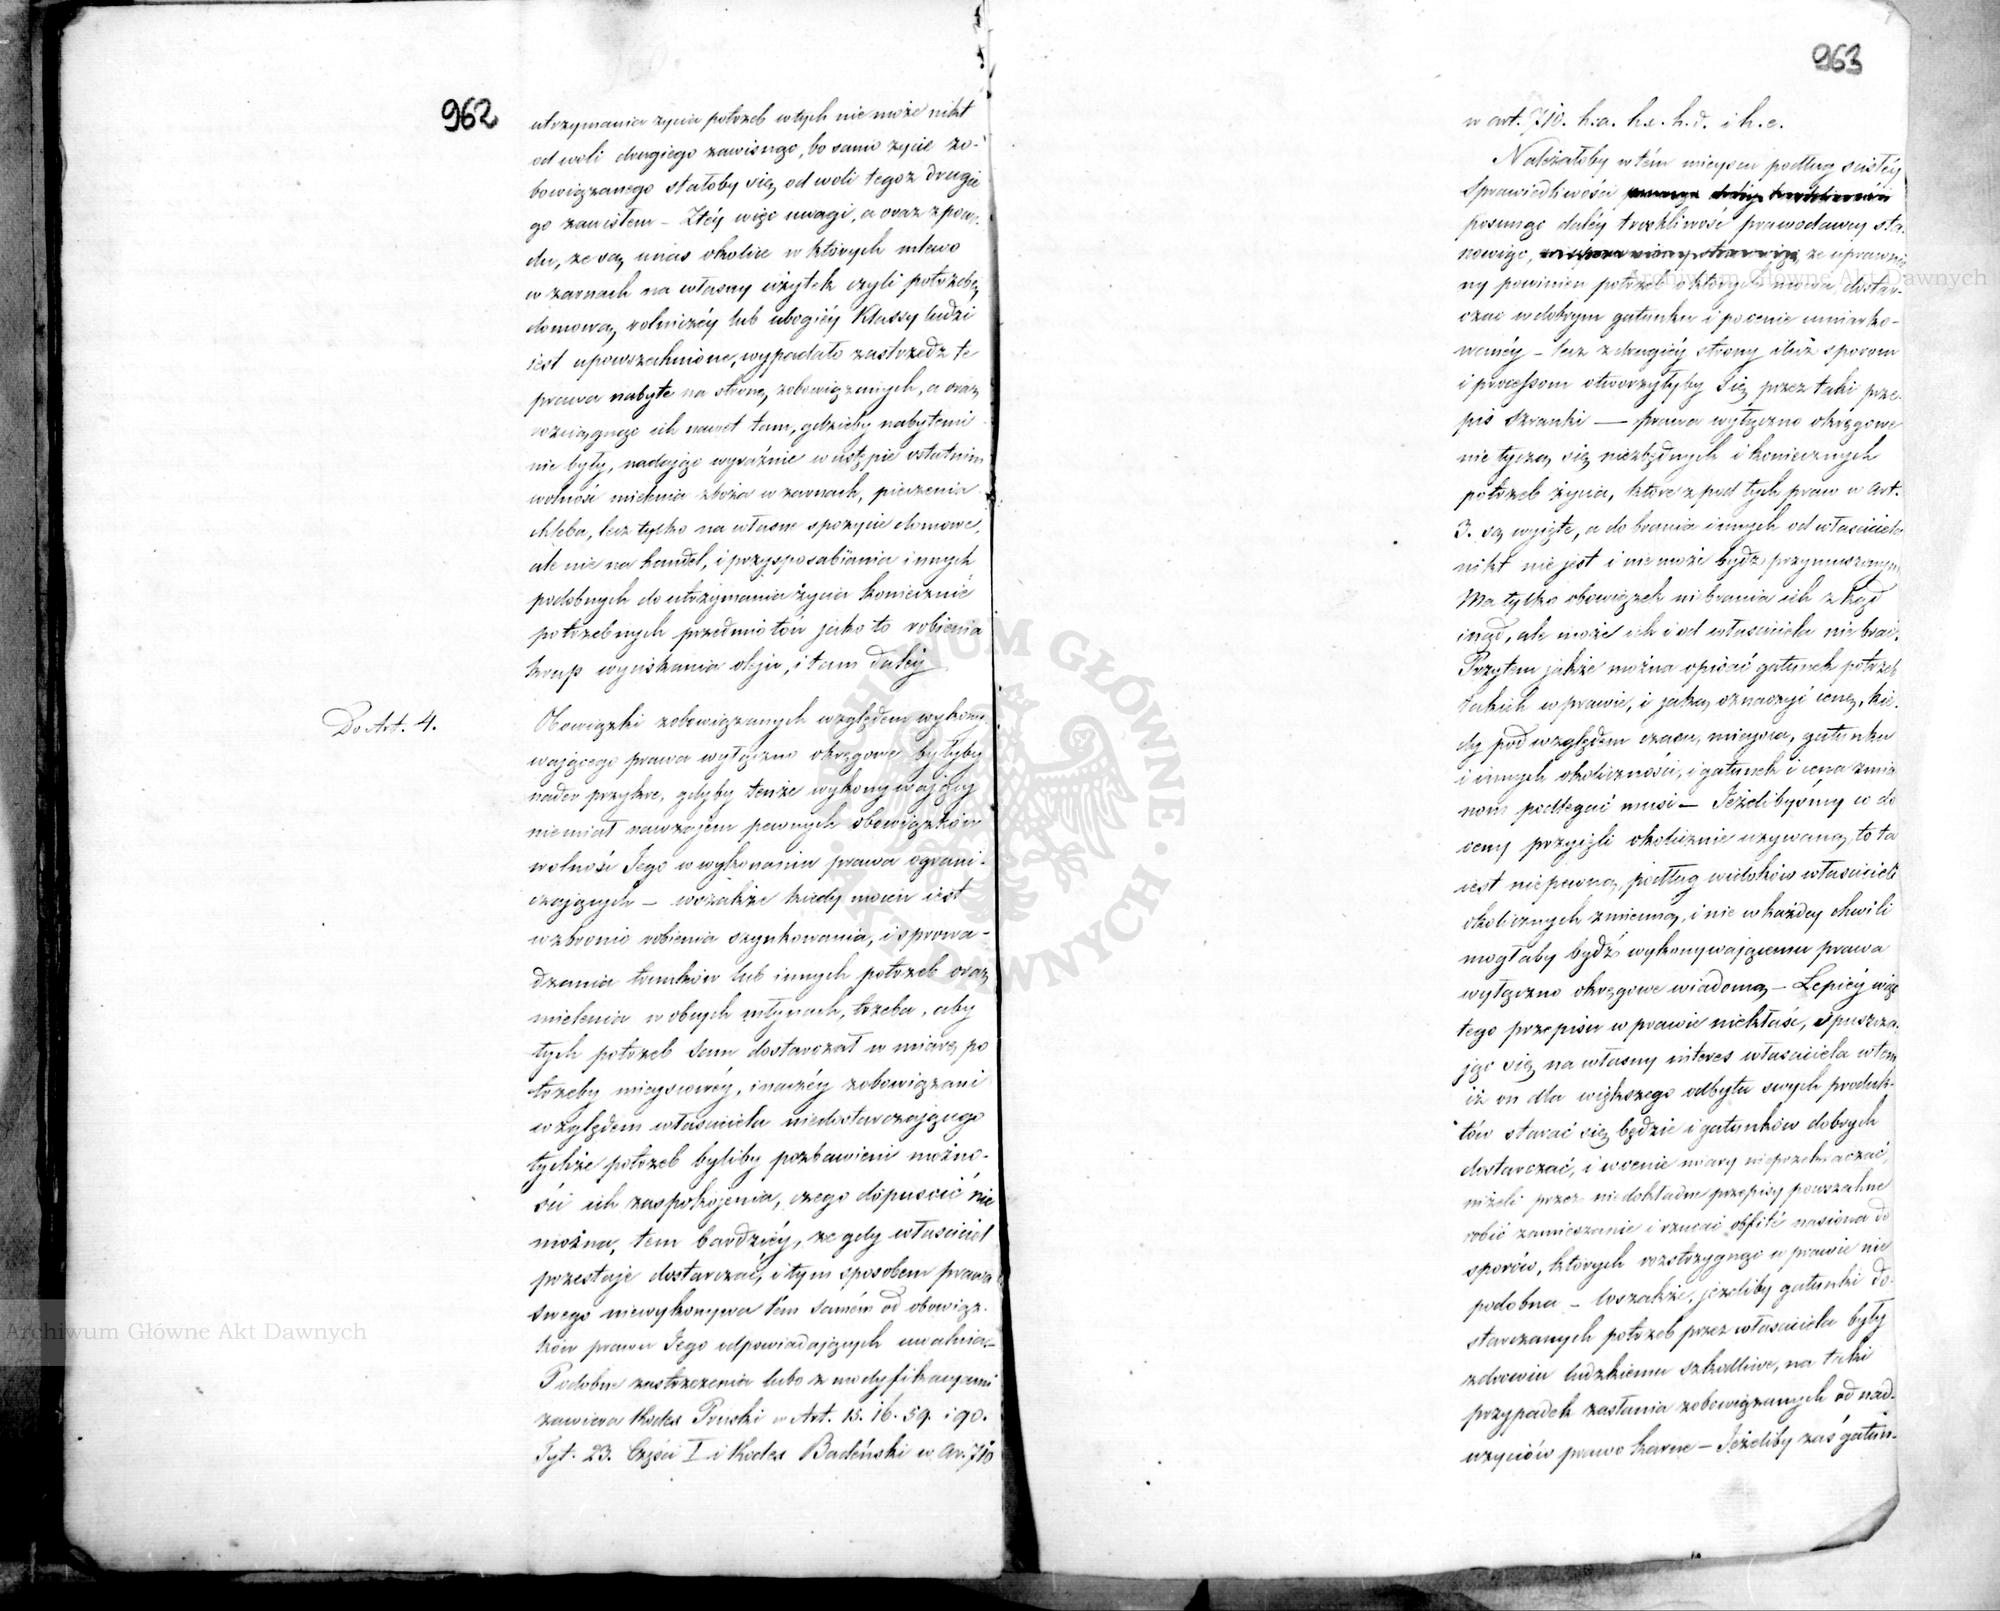 962
utrzymania życia potrzeb w tych nie może nikt
od woli drugiego zawisnąć, bo samo życie zo-
bowiązanego stałoby się od woli tegoż drugie
go zawisłem – Ztéy więc uwagi, a oraz z powo-
du, że są u nas okolice w których mlewo
w żarnach na własny użytek czyli potrzebę
domową rolniczéy lub ubogiéy Klassy ludzi
iest upowszechnione, wypadało zastrzedz te
prawa nabyte na stronę zobowiązanych, a oraz
rozciągnąć ich nawet tam, gdzieby nabytemi
nie były, nadając wyraźnie w ustępie ostatnim
wolność mielenia zboża w żarnach, pieczenia
chleba, lecz tylko na własne spożycie domowe,
ale nie na handel, i przysposabiania innych
podobnych do utrzymania życia koniecznie
potrzebnych przedmiotów jako to robienia
krup wyciskania oleju, i tam daléj
Do Art. 4.
Obowiązki zobowiązanych względem wykony-
wającego prawa wyłączno okręgowe byłyby
nader przykre, gdyby tenże wykonywający
niemiał nawzajem pewnych obowiązków
wolność Jego w wykonaniu prawa ograni-
czających – wszakże kiedy mocen iest
wzbronić robienia szynkowania, i sprowa-
dzania trunków lub innych potrzeb oraz
mielenia w obcych młynach, trzeba, aby
tych potrzeb sam dostarczał w miarę po
trzeby mieyscowéy, inaczéy zobowiązani
względem właściciela niedostarczającego
tychże potrzeb byliby pozbawieni możno-
ści ich zaspokojenia, czego dopuścić nie
można, tem bardziéy, że gdy właściciel
przestaje dostarczać, i tym sposobem prawa
swego niewykonywa tém samém od obowiąz-
ków prawu Jego odpowiadających uwalnia –
Podobne zastrzeżenia lubo z modyfikacyami
zawiera Kodex Pruski w Art. 15. 16. 59. i 90.
Tyt. 23. Części I i Kodex Badeński w Ar. 710
963
w art. 710. h.a. h.c. h.d. i h.e.
Należałoby w tém mieyscu podług ścisłéy
Sprawiedliwości
posunąć daléy troskliwość prawodawcy sta-
nowiąc, że uprawnio
ny powinien potrzeb o których mowa dostar-
czać w dobrym gatunku i po cenie umiarko-
wanéy – lecz z drugiéy strony iluż sporom
i processom otworzyłyby się przez taki prze-
pis szranki — prawa wyłączno okręgowe
nie tyczą się niezbędnych i koniecznych
potrzeb życia, które z pod tych praw w Art.
3. są wyięte, a do brania innych od właściciela
nikt nie jest i nie może bydź przymuszonym
Ma tylko obowiązek nie brania ich z kąd
inąd, ale może ich i od właściciela nie brać.
Przytem jakże można opisać gatunek potrzeb
takich w prawie, i jaką oznaczyć cenę, kie-
dy pod względem czasu, mieysca, gatunku
i innych okoliczności, i gatunek i cena zmia
nom podlegać musi – Jeżelibyśmy w do
ceny przyjęli okolicznie używaną, to ta
iest niepewną, podług widoków właścicieli
okolicznych zmienną, i nie w każdey chwili
mogłaby bydź wykonywającemu prawa
wyłączno okręgowe wiadomą – Lepiéy więc
tego przepisu w prawie nie kłaść, spuszcza-
jąc się na własny interes właściciela w tem
iż on dla większego odbytu swych produk-
tów starać się będzie i gatunków dobrych
dostarczać, i w cenie miary nieprzekraczać,
niżeli przez niedokładne przepisy powszechne
robić zamieszanie i rzucać obfité nasiona do
sporów, których rozstrzygnąć w prawie nie
podobna – Wszakże, jeżeliby gatunki do-
starczanych potrzeb przez właściciela były
zdrowiu ludzkiemu szkodliwe, na taki
przypadek zasłania zobowiązanych od nad-
użyciów prawo karne – Jeżeliby zaś gatun-
Archiwum Główne Akt Dawnych
Archiwum Główne Akt Dawnych
ARCHIWUM GŁÓWNE · AKT DAWNYCH ·